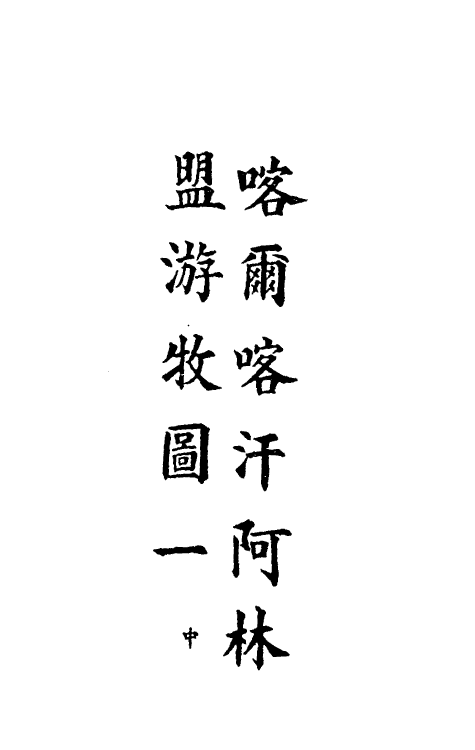 喀爾喀汗阿林
盟游牧圖一中